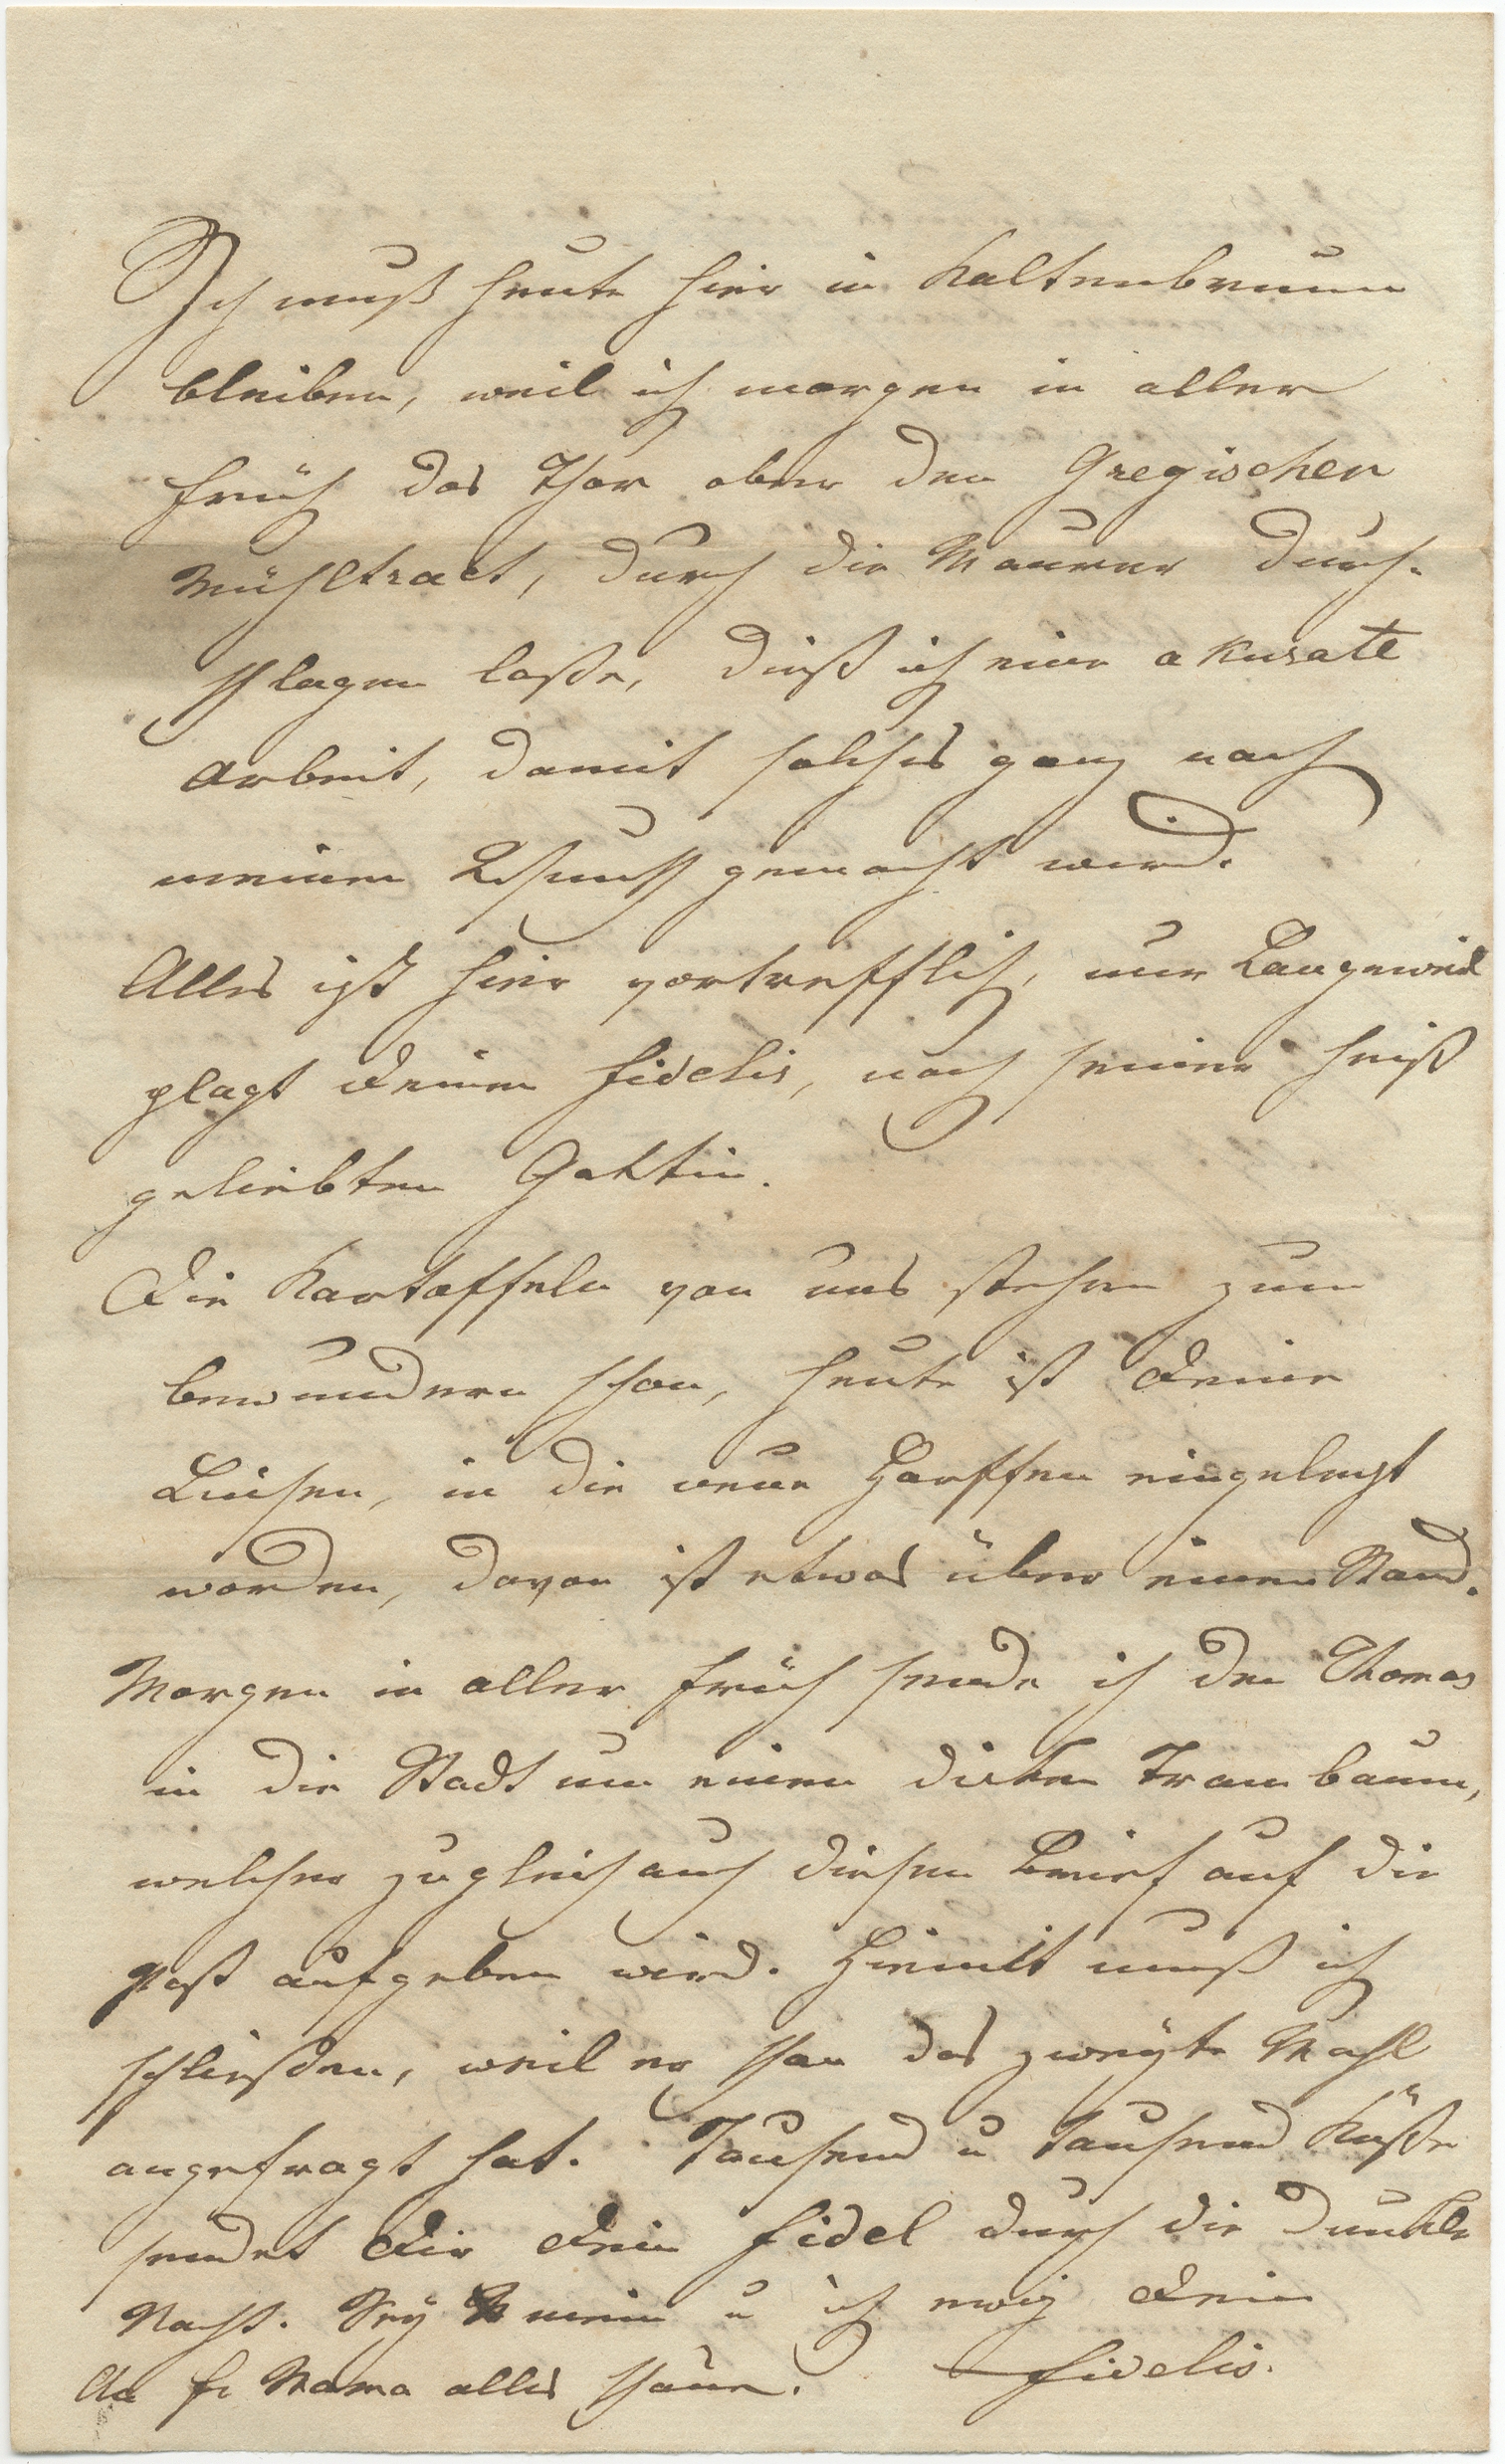 Ich muß heute hier in Kaltenbrunn
bleiben, weil ich morgen in aller
früh das Thor ober den Gregischen
Mühltract, durch die Maurer durch-
schlagen laße, dieß ist eine akurate
Arbeit, damit solches ganz nach
meinem Wunsch gemacht wird.
Alles ist hier vortrefflich, nur Langeweil
plagt Deinen Fidelis, nach seiner heiß
geliebten Gattin.
Die Kartoffeln von uns stehen zum
bewundern schön, heute ist Deine
Linsen, in die neue Harffen eingelegt
worden, davon ist etwas über einen Stand.
Morgen in aller früh sende ich den Thomas
in die Stadt um einen dicken Trambaum,
welcher zugleich auch diesen Brief auf die
Post aufgeben wird. Hiemit muß ich
schließen, weil er schon das zweyte Mahl
angefragt hat. Tausend u tausend Küße
sendet Dir Dein Fidel durch die dunkle
Nacht. Sey mein u ich ewig Dein
An fr Mama alles schöne. Fidelis.